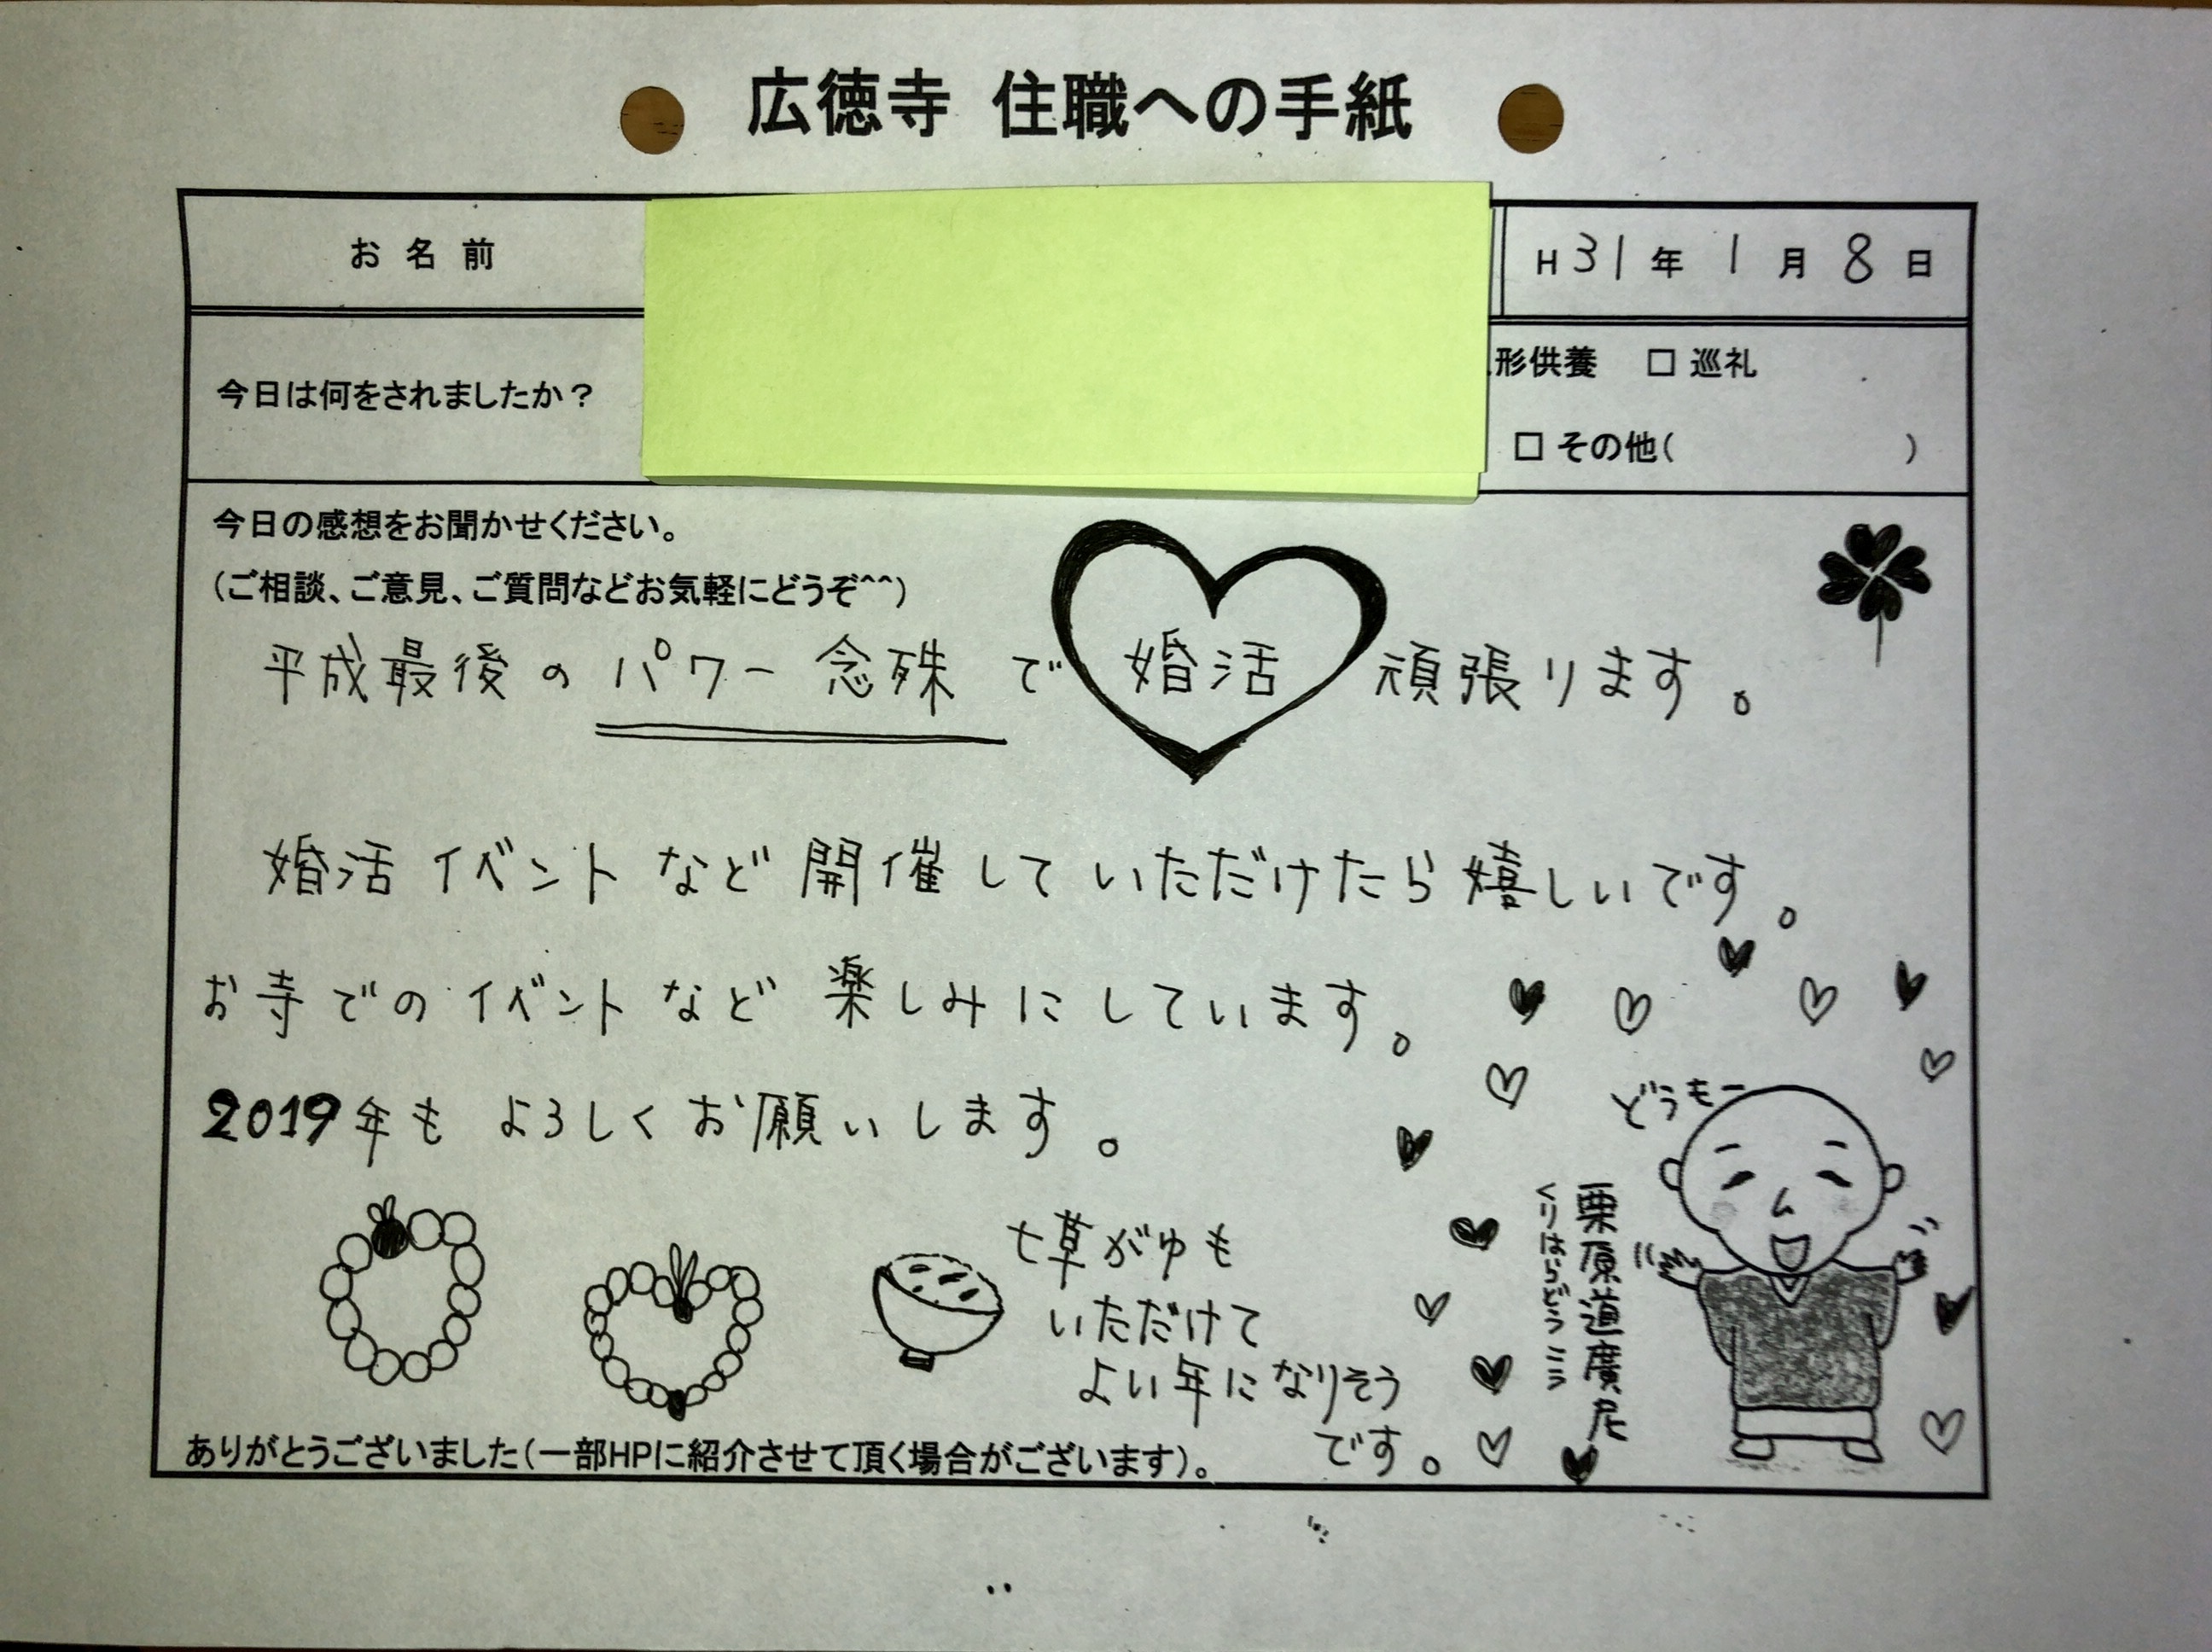 広徳寺 住職への手紙
お名前
H31年 1月 8日
今日は何をされましたか？
形供養 □ 巡礼
□ その他(            )
今日の感想をお聞かせください。
(ご相談、ご意見、ご質問などお気軽にどうぞ^^)
平成最後の パワー念珠 で 婚活 頑張ります。
婚活イベントなど開催していただけたら嬉しいです。
お寺でのイベントなど楽しみにしています。
2019年も よろしくお願いします。
どうもー
栗原道廣尼
くりはらどうこう
七草がゆも
いただけて
よい年になりそう
です。
ありがとうございました(一部HPに紹介させて頂く場合がございます)。